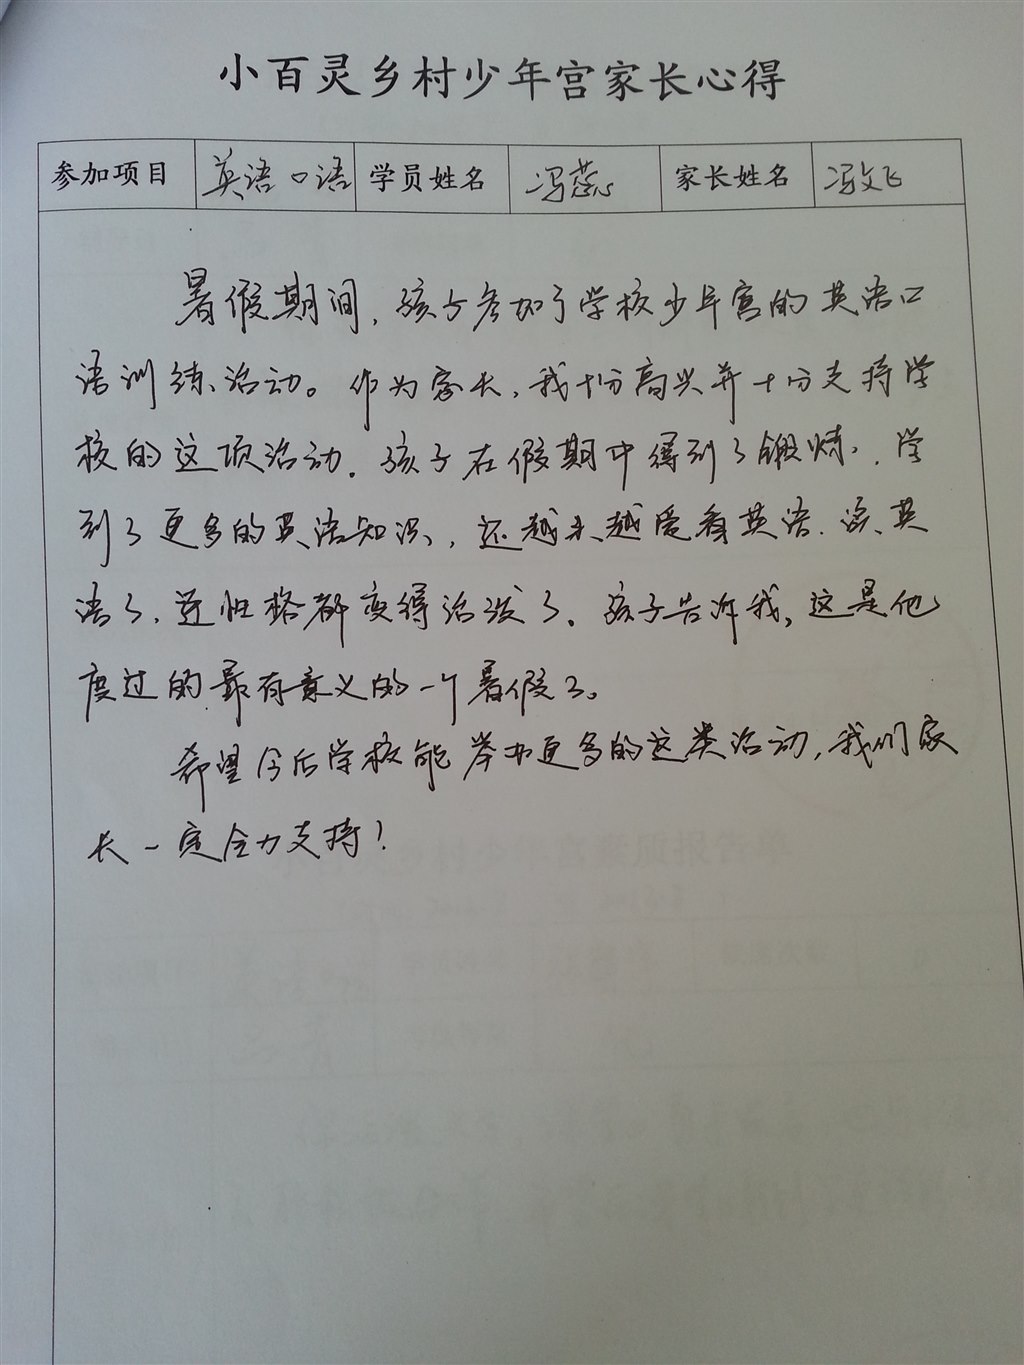 小百灵乡村少年宫家长心得
参加项目 英语口语 学员姓名 冯蕊 家长姓名 冯文飞
暑假期间，孩子参加了学校少年宫的英语口
语训练活动。作为家长，我十分高兴并十分支持学
校的这项活动。孩子在假期中得到了锻炼，学
到了更多的英语知识，还越来越爱看英语、读英
语了，连性格都变得活泼了。孩子告诉我，这是他
度过的最有意义的一个暑假了。
希望今后学校能举办更多的这类活动，我们家
长一定全力支持！